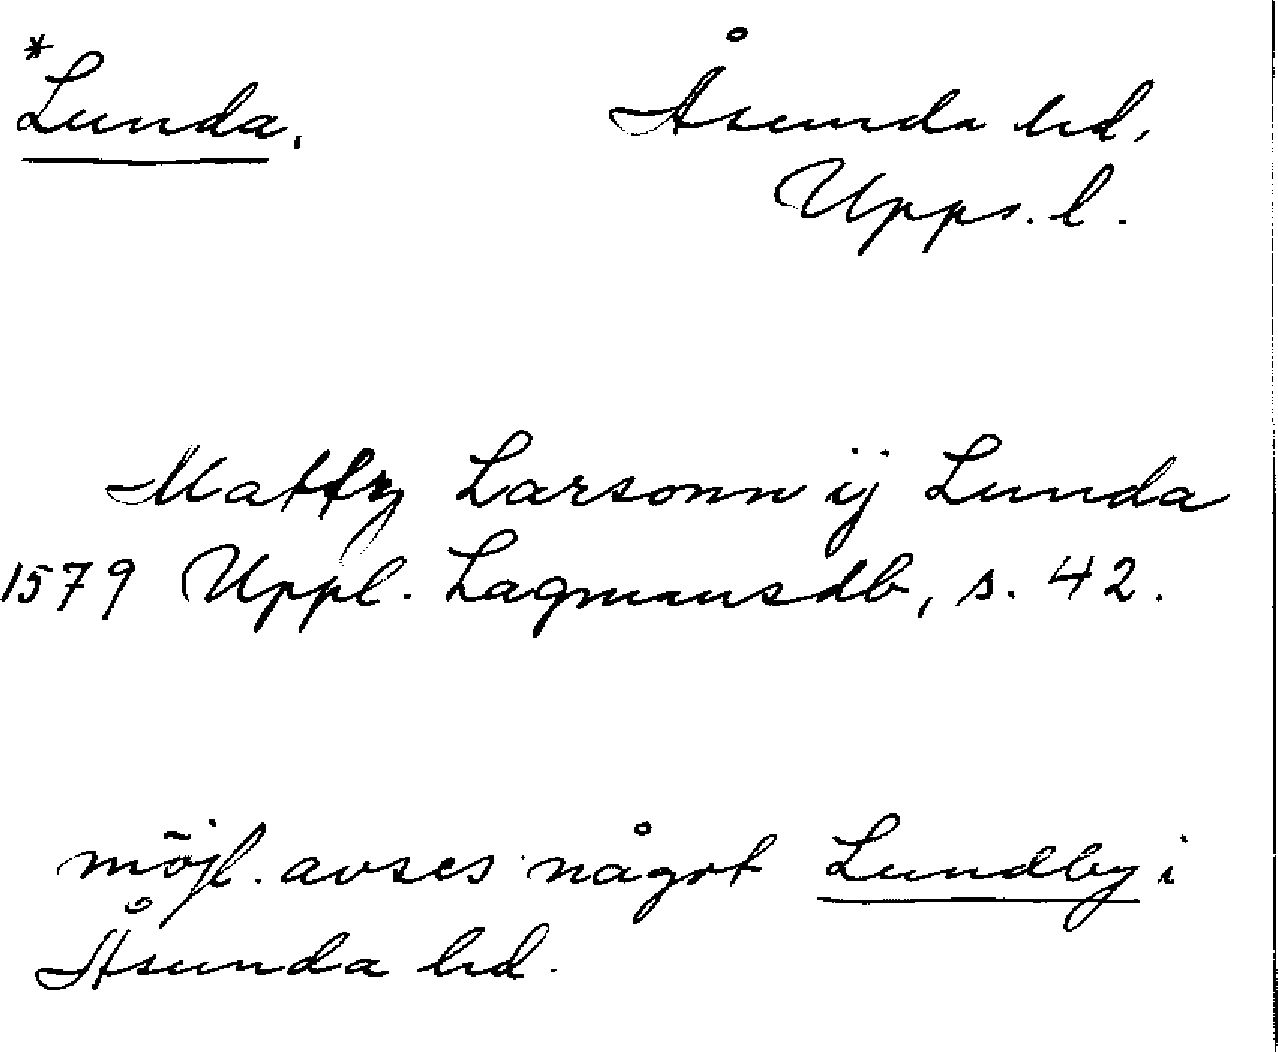 *Lunda.
Åsunda hd.
Upps. l.
Larsonn ij Lunda
1579 Uppl. Lagmansdb, s. 42.
möjl. avses något Lundby i
Åsunda hd.